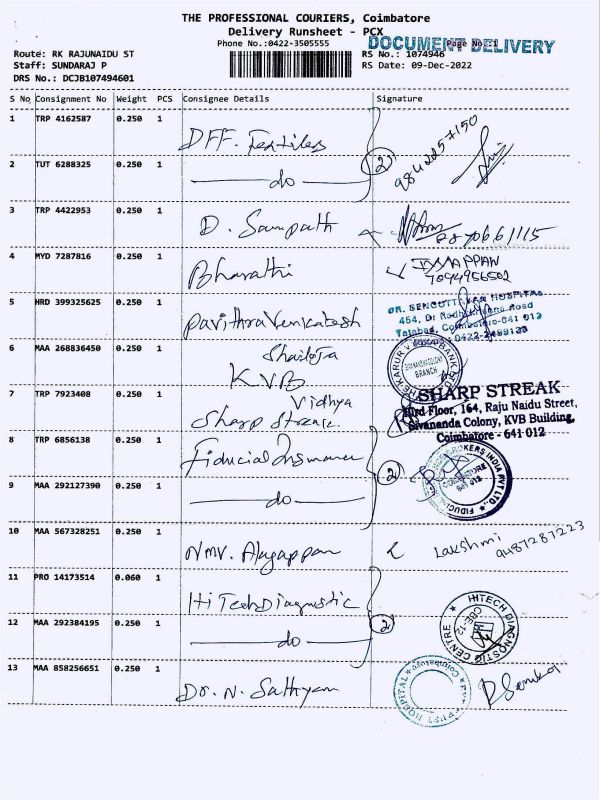 THE PROFESSIONAL COURIERS, Coimbatore
Delivery Runsheet - PCX
Phone No.:0422-3505555
DOCUMENT DELIVERY
Page No.:1
Route: RK RAJUNAIDU ST
RS No.: 1074946
Staff: SUNDARAJ P
RS Date: 09-Dec-2022
DRS No.: DCJB107494601
S No Consignment No Weight PCS Consignee Details Signature
1 TRP 4162587 0.250 1 DFF. Textiles
2 9842257150
2 TUT 6288325 0.250 1 do
3 TRP 4422953 0.250 1 D. Sampath 8870661115
4 MYD 7287816 0.250 1 Bharathi
IYYAPPAN
7094956502
5 HRD 399325625 0.250 1 Pavithra Venkatesh
454, Dr Radhakrishna Road
Tatabad, Coimbatore-641 012
6 MAA 268836450 0.250 1 Shailaja
KVB
THE KARUR VYSYA BANK LTD
SIVANANDA COLONY
BRANCH
7 TRP 7923408 0.250 1 Vidhya
Sharp Streak
SHARP STREAK
IIIrd Floor, 164, Raju Naidu Street,
Sivananda Colony, KVB Building,
Coimbatore - 641 012
8 TRP 6856138 0.250 1 Fiducial Insurance
2
BROKERS INDIA PVT LTD.
COIMBATORE
641 012
9 MAA 292127390 0.250 1 do
10 MAA 567328251 0.250 1 NMV. Alagappan
Lakshmi
9487287223
11 PRO 14173514 0.060 1 HiTech Diagnostic
2
HITECH DIAGNOSTIC CENTRE
CBE-12
12 MAA 292384195 0.250 1 do
13 MAA 858256651 0.250 1 Dr. N. Sathyan
HOSPITAL
Coimbatore